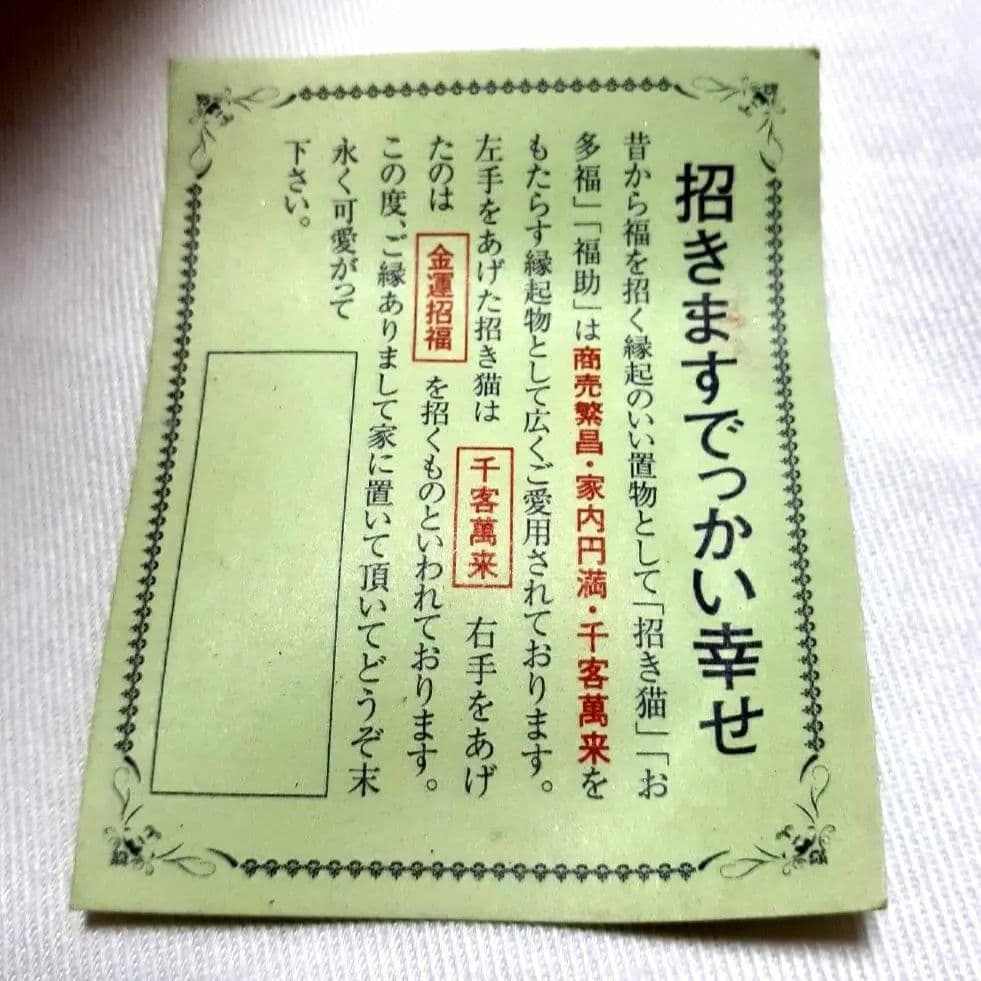 招きますでっかい幸せ
昔から福を招く縁起のいい置物として「招き猫」「お
多福」「福助」は商売繁昌・家内円満・千客萬来を
もたらす縁起物として広くご愛用されております。
左手をあげた招き猫は 千客萬来 右手をあげ
たのは 金運招福 を招くものといわれております。
この度、ご縁ありまして家に置いて頂いてどうぞ末
永く可愛がって
下さい。